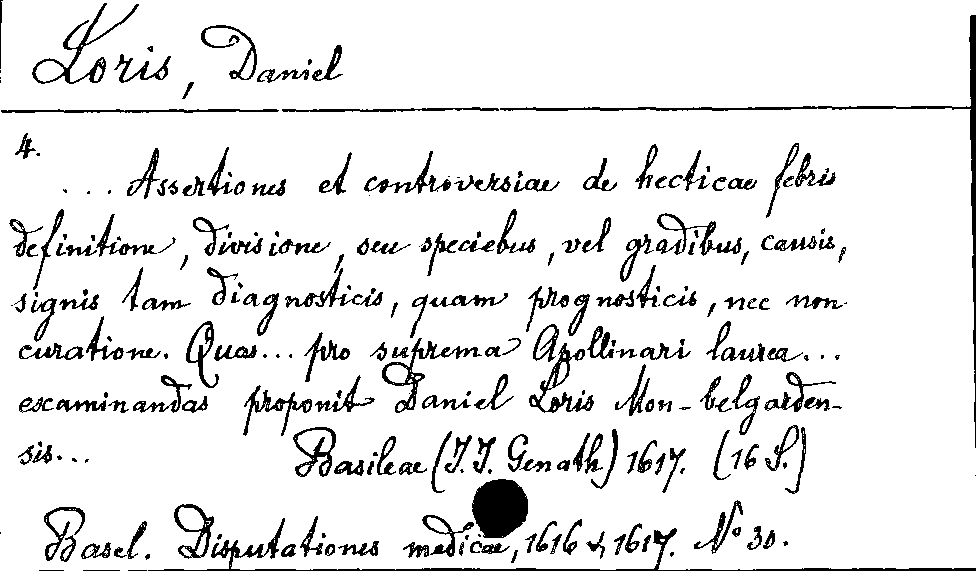 Loris, Daniel
4.
... Assertiones et controversiae de hecticae febris
definitione, divisione, seu speciebus, vel gradibus, causis,
signis tam diagnosticis, quam prognosticis, nec non
curatione. Quas... pro suprema Apollinari laurea...
examinandas proponit Daniel Loris Mon-belgarden-
sis... Basileae (J. J. Genath) 1617. (16 S.)
Basel. Disputationes medicae, 1616 & 1617. No 30.